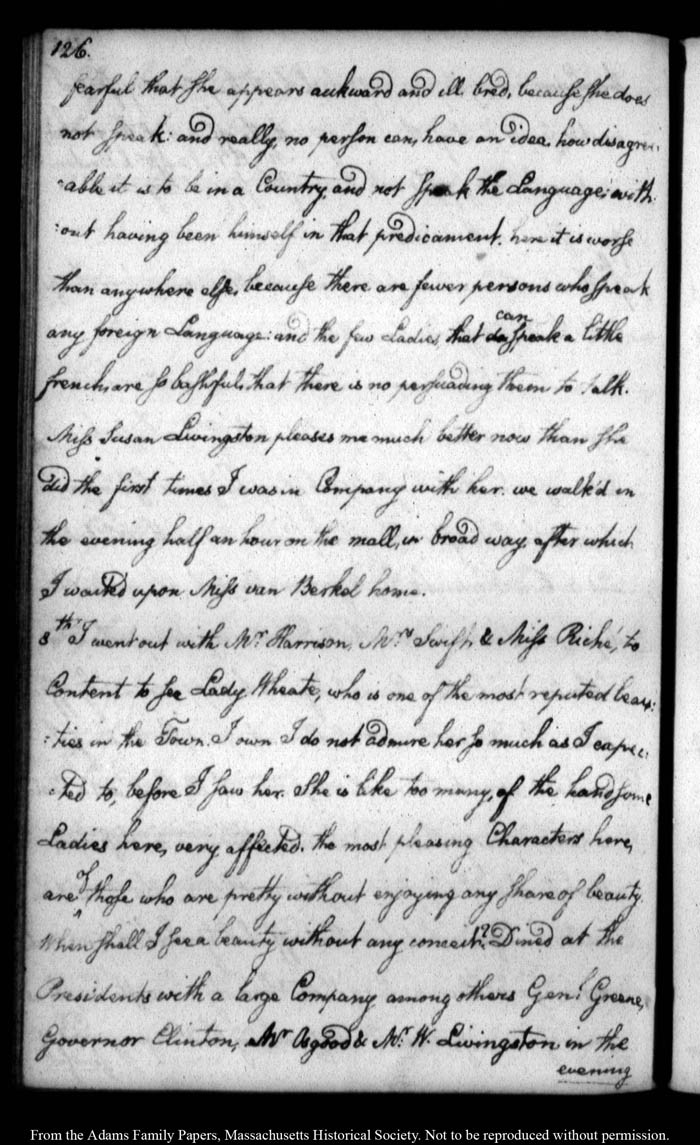 126.
fearful that she appears aukward and ill bred, because she does
not speak: and really, no person can, have an idea, how disagree:
:able it is to be in a Country, and not speak the Language: with:
:out having been himself in that predicament. here it is worse
than anywhere else, because there are fewer persons who speak
any foreign Language: and the few Ladies, that can speak a little
french, are so bashful, that there is no persuading them to talk.
Miss Susan Livingston pleases me much better now than she
did the first times I was in Company with her. we walk'd in
the evening half an hour on the mall, in broad way. after which
I waited upon Miss van Berkel home.
8th I went out with Mr. Harrison, Mrs Swift, & Miss Riché, to
Content to see Lady Wheate, who is one of the most reputed beau:
:ties in the Town. I own I do not admire her so much as I expec:
:ted to, before I saw her. She is like too many, of the handsome
Ladies here, very affected. the most pleasing Characters here,
are of those who are pretty without enjoying any share of beauty.
When shall I see a beauty without any conceit? Dined at the
Presidents with a large Company among others Genl. Greene,
Governor Clinton, Mr Osgood & Mr. W. Livingston in the
evening
From the Adams Family Papers, Massachusetts Historical Society. Not to be reproduced without permission.